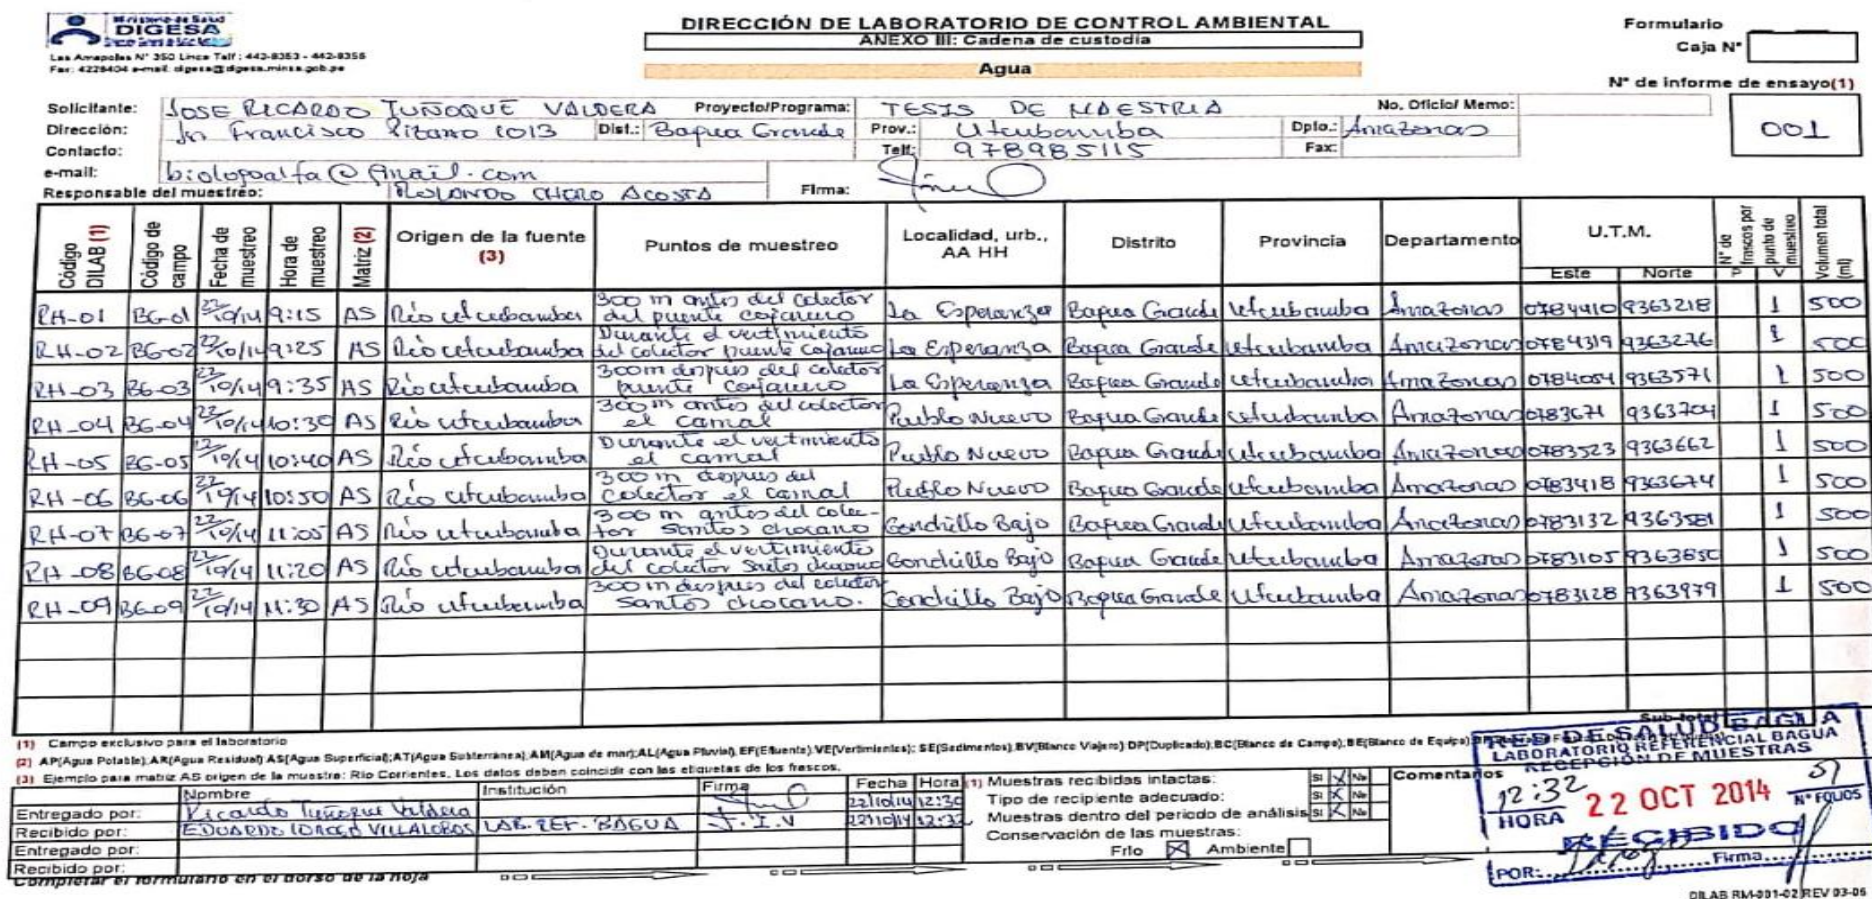 Ministerio de Salud
DIGESA
Las Amapolas N° 350 Lince Telf : 442-8353 - 442-8356
Fax: 4228404 e-mail: digesa@digesa.minsa.gob.pe
DIRECCIÓN DE LABORATORIO DE CONTROL AMBIENTAL
ANEXO III: Cadena de custodia
Agua
Formulario
Caja N°
N° de informe de ensayo(1)
001
Solicitante: JOSE RICARDO TUÑOQUE VALDERA Proyecto/Programa: TESIS DE MAESTRIA No. Oficio/ Memo:
Dirección: Jr. Francisco Pizarro 1013 Dist.: Bagua Grande Prov.: Utcubamba Dpto.: Amazonas
Contacto: Telf: 978985115 Fax:
e-mail: biologoalfa@gmail.com
Responsable del muestreo: ROLANDO CHERO ACOSTA Firma:
Código DILAB (1) Código de campo Fecha de muestreo Hora de muestreo Matriz (2) Origen de la fuente (3) Puntos de muestreo Localidad, urb., AA HH Distrito Provincia Departamento U.T.M. N° de frascos por punto de muestreo Volumen total (ml)
Este Norte P V
RH-01 BG-01 22/10/14 9:15 AS Río utcubamba 300 m antes del colector del puente cajaruro La Esperanza Bagua Grande Utcubamba Amazonas 0784410 9363218 1 500
RH-02 BG-02 22/10/14 9:25 AS Río utcubamba Durante el vertimiento del colector puente cajaruro La Esperanza Bagua Grande Utcubamba Amazonas 0784319 9363276 1 500
RH-03 BG-03 22/10/14 9:35 AS Río utcubamba 300m despues del colector puente cajaruro La Esperanza Bagua Grande utcubamba Amazonas 0784054 9363571 1 500
RH-04 BG-04 22/10/14 10:30 AS Río utcubamba 300 m antes del colector el camal Pueblo Nuevo Bagua Grande utcubamba Amazonas 0783671 9363704 1 500
RH-05 BG-05 22/10/14 10:40 AS Río utcubamba Durante el vertimiento el camal Pueblo Nuevo Bagua Grande Utcubamba Amazonas 0783523 9363662 1 500
RH-06 BG-06 22/10/14 10:50 AS Río utcubamba 300 m despues del colector el camal Pueblo Nuevo Bagua Grande Utcubamba Amazonas 0783418 9363674 1 500
RH-07 BG-07 22/10/14 11:05 AS Río utcubamba 300 m antes del colector Santos chocano Gonchillo Bajo Bagua Grande Utcubamba Amazonas 0783132 9363581 1 500
RH-08 BG-08 22/10/14 11:20 AS Río utcubamba Durante el vertimiento del colector Santos chocano Gonchillo Bajo Bagua Grande Utcubamba Amazonas 0783105 9363850 1 500
RH-09 BG-09 22/10/14 11:30 AS Río utcubamba 300 m despues del colector Santos chocano. Gonchillo Bajo Bagua Grande Utcubamba Amazonas 0783128 9363979 1 500
Sub-total
(1) Campo exclusivo para el laboratorio
(2) AP(Agua Potable);AR(Agua Residual) AS(Agua Superficial);AT(Agua Subterránea);AM(Agua de mar);AL(Agua Pluvial);EF(Efluente);VE(Vertimientos); SE(Sedimentos);BV(Blanco Viajero) DP(Duplicado);BC(Blanco de Campo);BE(Blanco de Equipo)
(3) Ejemplo para matriz AS origen de la muestra: Río Corrientes. Los datos deben coincidir con las etiquetas de los frascos.
Nombre Institución Firma Fecha Hora
Entregado por: Ricardo Tuñoque Valdera 22/10/14 12:30
Recibido por: EDUARDO IDROGO VILLALOBOS LAB. REF. BAGUA J.I.V 22/10/14 12:32
Entregado por:
Recibido por:
Completar el formulario en el dorso de la hoja
(1) Muestras recibidas intactas: SI X No
Tipo de recipiente adecuado: SI X No
Muestras dentro del periodo de análisis SI X No
Conservación de las muestras:
Frío X Ambiente
Comentarios
RED DE SALUD BAGUA
LABORATORIO REFERENCIAL BAGUA
RECEPCIÓN DE MUESTRAS
12:32 22 OCT 2014
HORA N° FOLIOS
RECIBIDO
POR: Firma
DILAB RM-001-02 REV 03-05